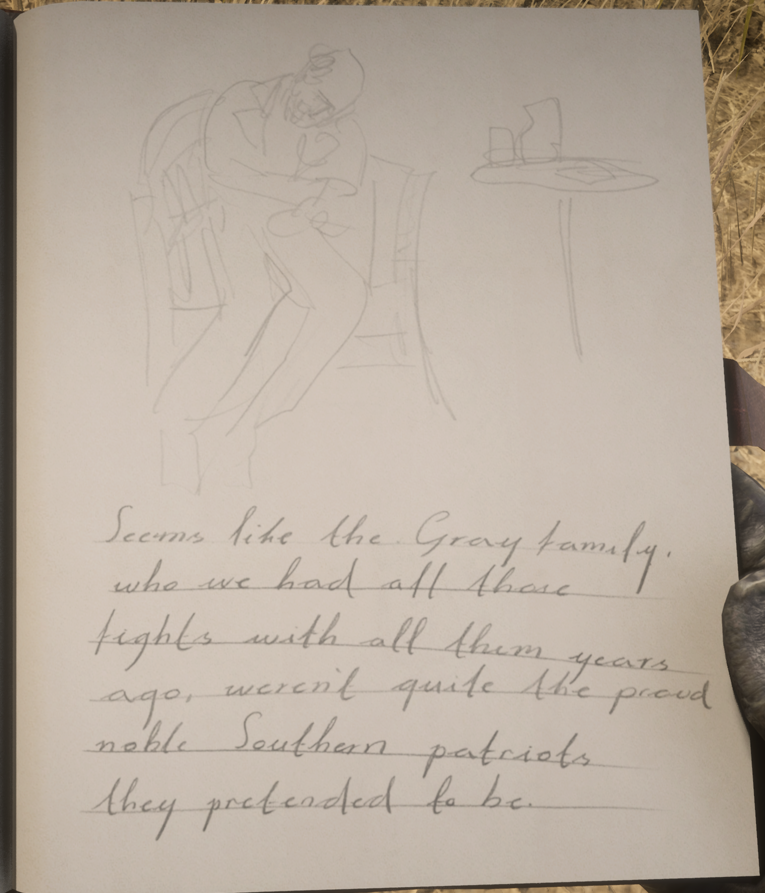 Seems like the Gray family,
who we had all those
fights with all them years
ago, weren't quite the proud
noble Southern patriots
they pretended to be.